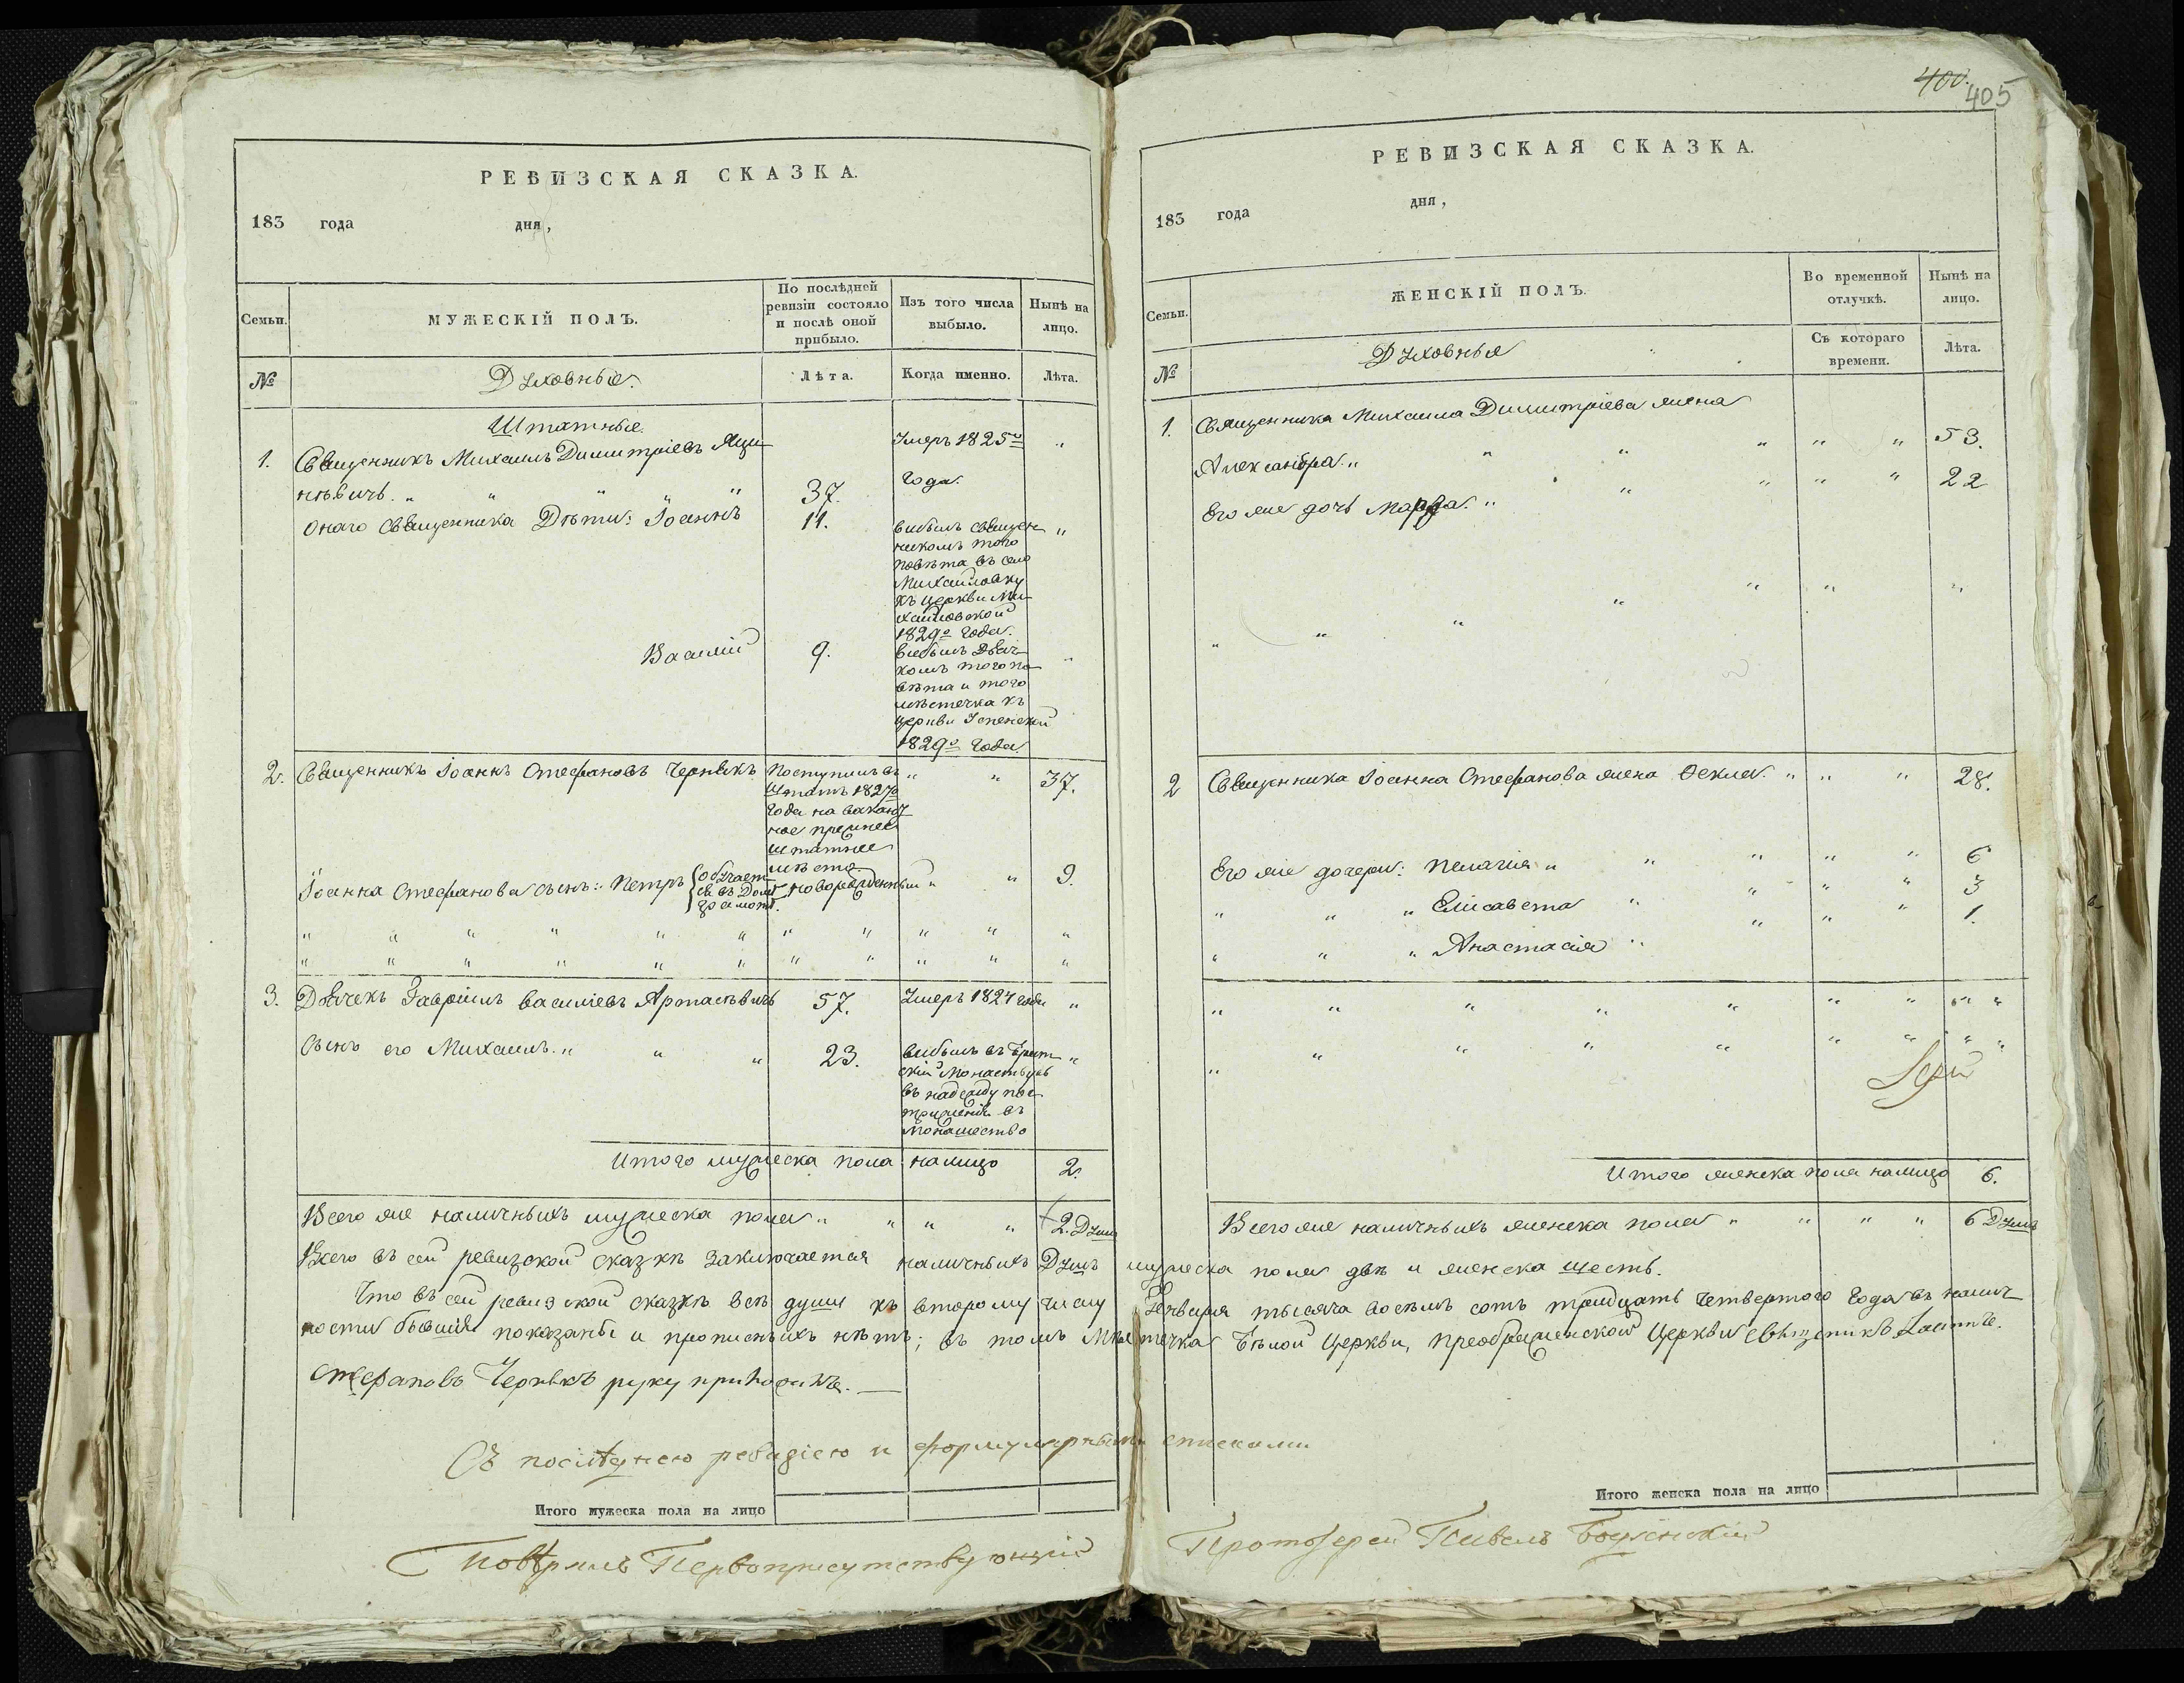 РЕВИЗСКАЯ СКАЗКА.
183 года дня,
Семьи.
МУЖЕСКІЙ ПОЛЪ.
По послѣдней
ревизіи состояло
и послѣ оной
прибыло.
Изъ того числа
выбыло.
Нынѣ на
лицо.
№
Духовные.
Лѣта.
Когда именно.
Лѣта.
Штатные.
1. Священникъ Михаилъ Димитріевъ Яци-
нѣвичъ. " " " " " 37.
Умеръ 1825го
года. "
Онаго священника Дѣти: Іоаннъ 11.
выбылъ священ-
никомъ того
повѣта въ село
Михайловку
къ церкви Ми-
хайловской
1829го года. "
Василій 9.
выбылъ дьяч-
комъ того по-
вѣта и того
мѣстечка къ
церкви Успенской
1829го года. "
2. Священникъ Іоаннъ Стефановъ Чернякъ
Поступилъ въ
Штатъ 1827го
года на вакант-
ное прежнее
штатнее
мѣсто.
" " 37.
Іоанна Стефанова сынъ: Петръ { обучает-
ся въ домѣ
грамотѣ. новорожденный " " 9.
" " " " " " " " " " "
" " " " " " " " " " "
3. Дьячекъ Гавріилъ Василіевъ Аѳпасѣвичъ 57. Умеръ 1827 года "
Сынъ его Михаилъ. " " " 23.
выбылъ въ Брат-
скій Монастырь
въ надежду пос-
триженія въ
монашество "
Итого мужеска пола налицо 2.
Всего же наличныхъ мужеска пола " " " " 2. Душ
РЕВИЗСКАЯ СКАЗКА.
400. 405
183 года дня,
Семьи.
ЖЕНСКІЙ ПОЛЪ.
Во временной
отлучкѣ.
Нынѣ на
лицо.
№
Духовныя
Съ котораго
времени.
Лѣта.
1. Священника Михаила Димитріева жена
Александра. " " " " " " 53.
Его же дочь Марѳа. " " " " " 22
" " " " " " "
2 Священника Іоанна Стефанова жена Ѳекла. " " " 28.
Его же дочери: Пелагія " " " " " 6
" " " Елисавета " " " " 3
" " " Анастасія " " " " 1.
" " " " " " " " "
" " " " " " " " "
Итого женска пола налицо 6.
Всего же наличныхъ женска пола " " " " 6 Душъ
Всего въ сей ревизской сказкѣ заключается наличныхъ Душъ мужеска пола двѣ и женска шесть.
Что въ сей ревизской сказкѣ всѣ души къ второму числу Генваря тысяча восемь сотъ тридцать четвертого года въ налич-
ности бывшія показаны и прописныхъ нѣтъ; въ томъ Мѣстечка Бѣлой Церкви, Преображенской Церкви Священникъ Іоаннъ
Стефановъ Чернякъ руку приложилъ.
Съ послѣднею ревизіею и формулярными списками
Итого мужеска пола на лицо
Итого женска пола на лицо
Повѣрялъ Первоприсутствующій Протоіерей Павелъ